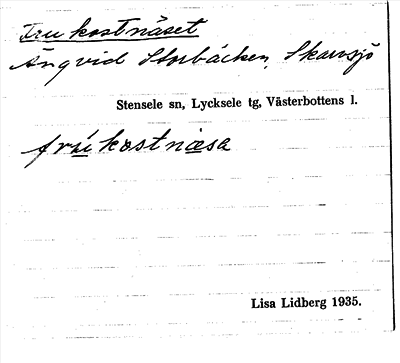 Frukostnäset
Äng vid Storbäcken, Skarvsjö
Stensele sn, Lycksele tg, Västerbottens l.
frúkostnæsa
Lisa Lidberg 1935.